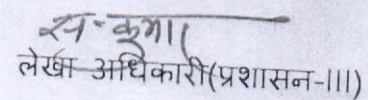 कुमार
लेखा अधिकारी(प्रशासन-III)